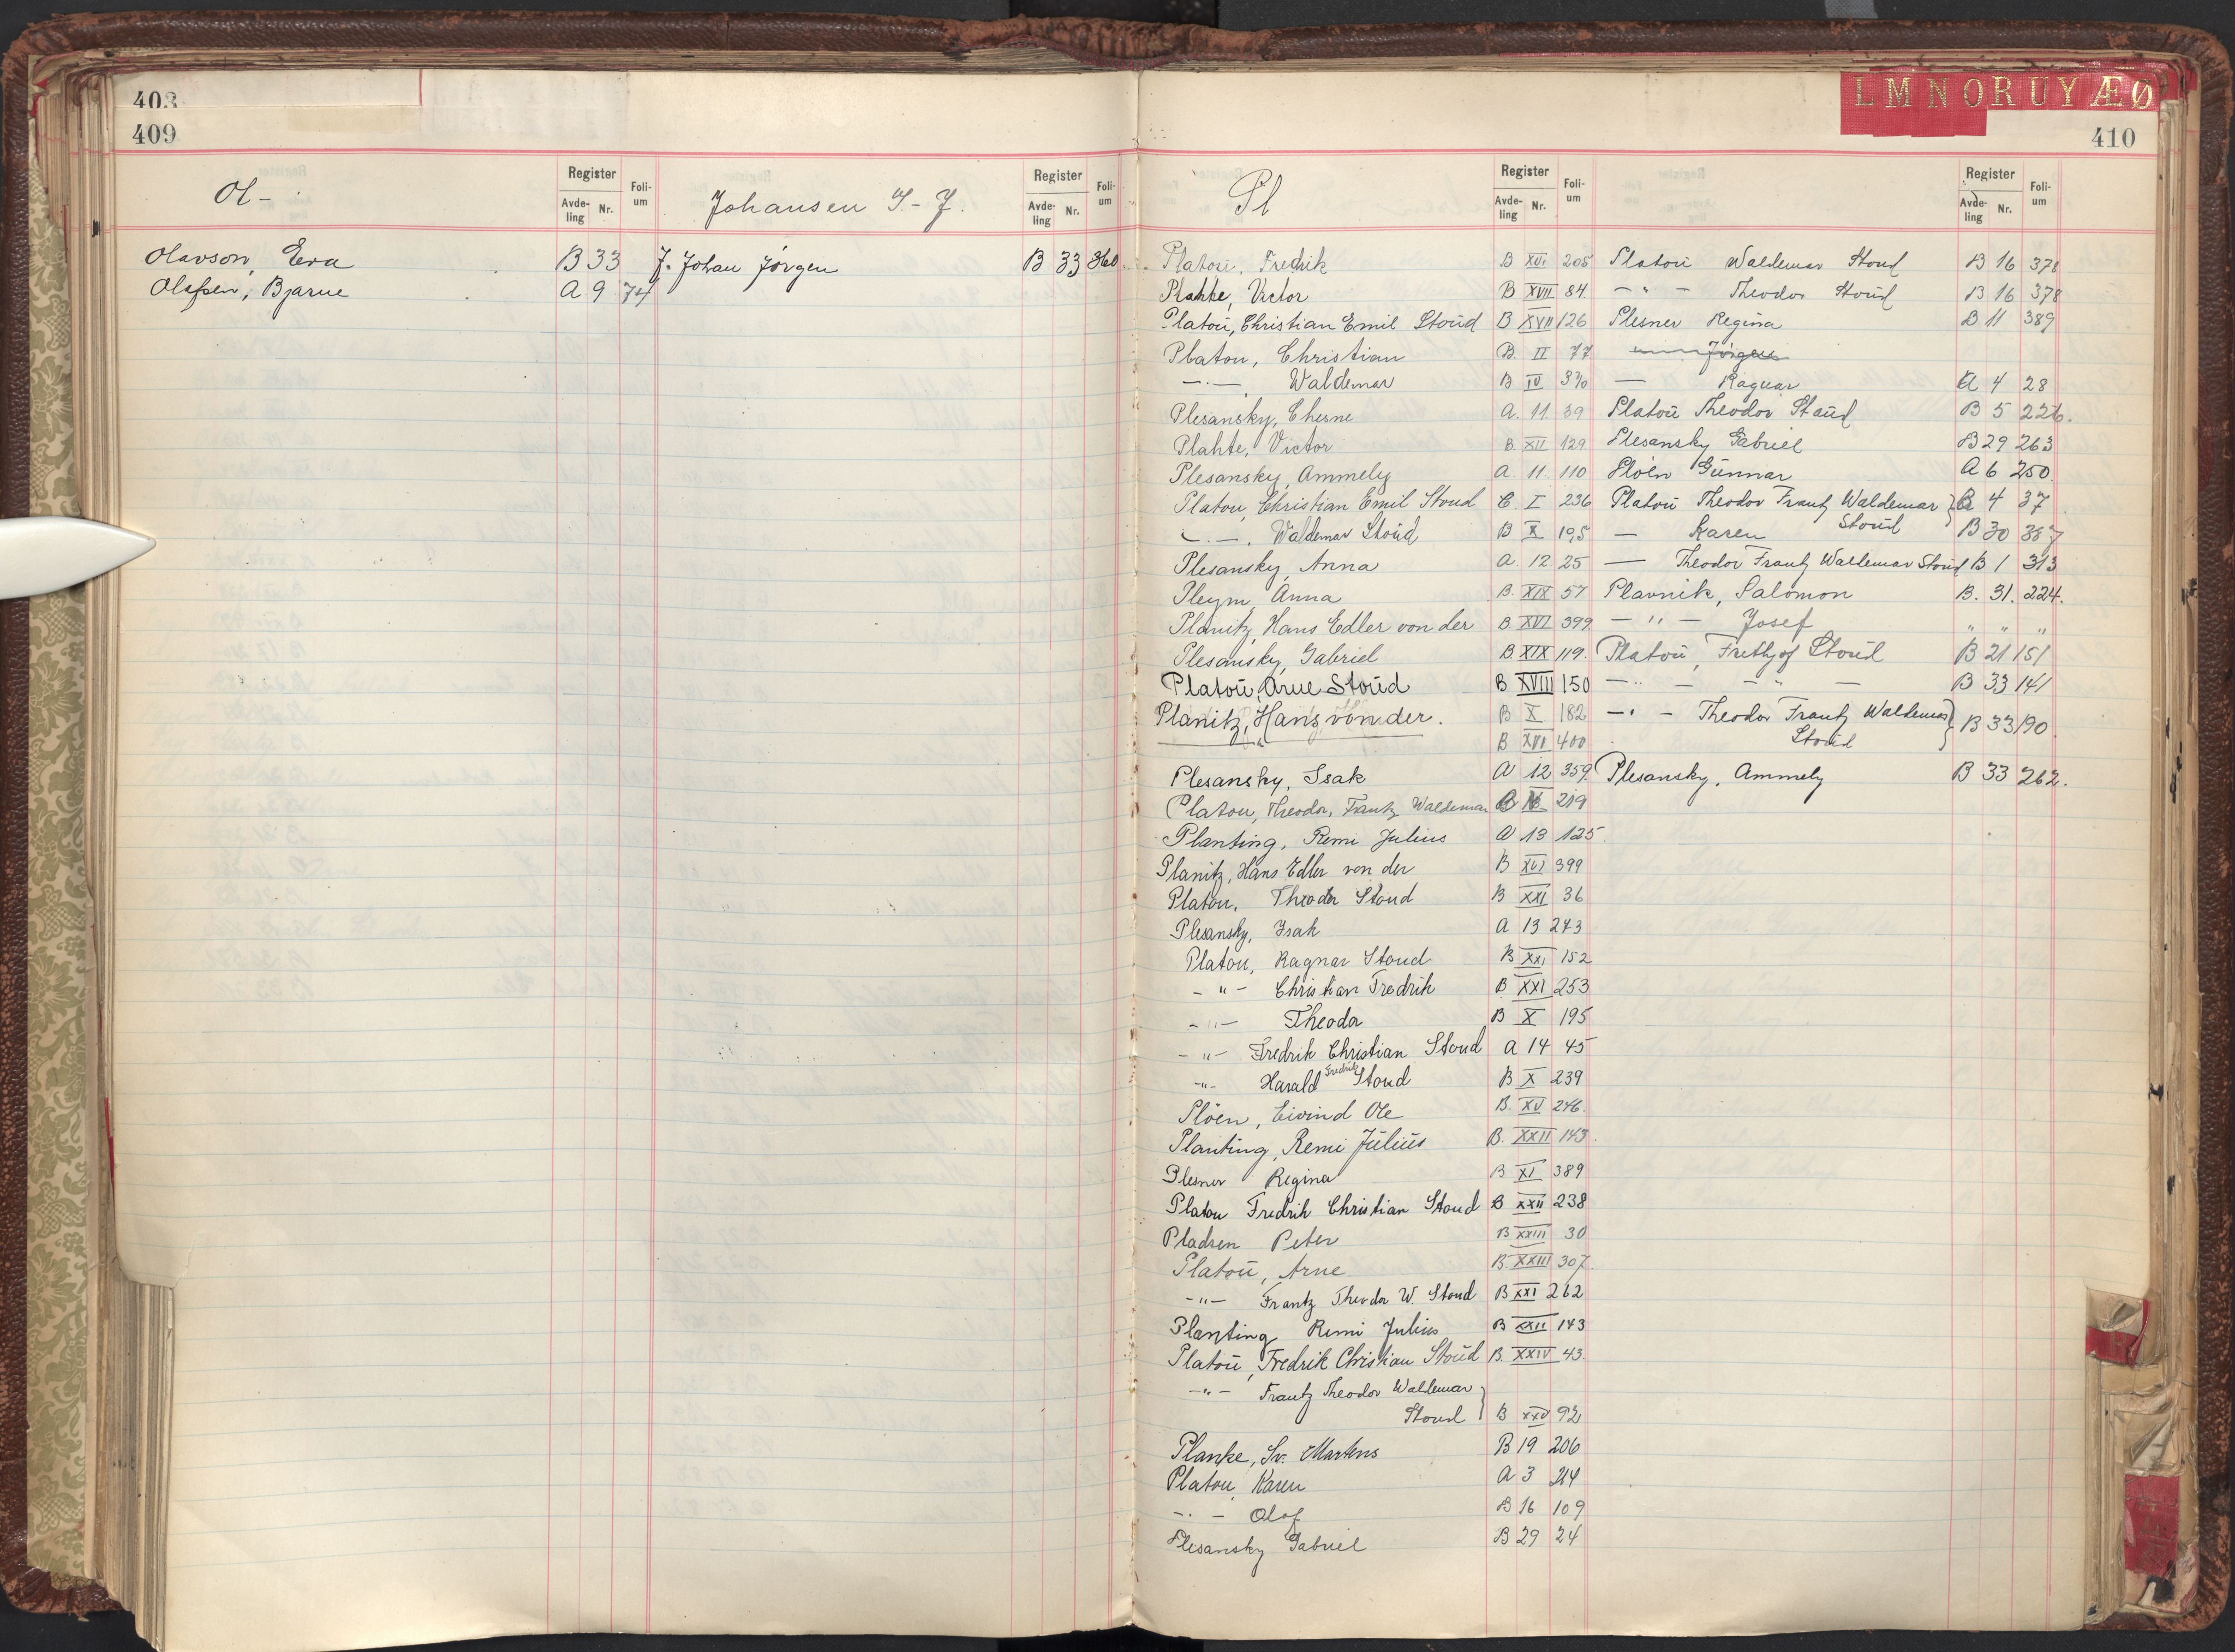 403
409
Register
Avde-ling Nr.
Foli-um
Register
Avde-ling Nr.
Foli-um
Ol -
Johansen I - J.
Olavson, Eva B 33
Olessen, Bjarne A 9 74
J. Johan Jörgen B 33 360
L M N O R U Y Æ Ø
410
Register
Avde-ling Nr.
Foli-um
Register
Avde-ling Nr.
Foli-um
Pl
Platou, Fredrik B XVI 205
Plahte, Victor B XVII 84
Platou, Christian Emil Stoud B XVII 126
Platou, Christian B. II 77
—·— Waldemar B IV 370
Plesansky, Cherne A. 11 39
Plahte, Victor B. XII 129
Plesansky, Ammely A. 11 110
Platou, Christian Emil Stoud C. I 236
—·—. Waldemar Stoud B X 195
Plesansky, Anna A. 12. 25
Pleym, Anna B. XIX 57
Planitz, Hans Edler von der B. XVI 399
Plesansky, Gabriel B. XIX 119.
Platou, Arne Stoud B XVIII 150
Planitz, Hans von der. B X 182
B XVI 400
Plesansky, Isak A 12 359
Platou, Theodor, Frantz Waldemar B 219
Planting, Remi Julius A 13 125
Planitz, Hans Edler von der B XVI 399
Platou, Theodor Stoud B XXI 36
Plesansky, Isak A 13 243
Platou, Ragnar Stoud B XXI 152
- " - Christian Fredrik B XXI 253
- " - Theodor B X 195
- " - Fredrik Christian Stoud A 14 45
- " - Harald Fredrik Stoud B X 239
Plöen, Eivind Ole B. XV 246.
Planting, Remi Julius B. XXII 143.
Plesner Regina B XI 389
Platou Fredrik Christian Stoud B XXII 238
Pladsen Peter B XXIII 30
Platou, Arne B. XXIII 307.
- " - Frantz Theodor W. Stoud B XXI 262
Planting Remi Julius B XXII 143
Platou, Fredrik Christian Stoud B. XXIV 43.
- " - Frantz Theodor Waldemar
Stoud } B XXV 92
Planke, Sv. Martens B 19 206
Platou, Karen A 3 214
- · - Olaf B 16 109
Plesansky Gabriel B 29 24
Platou Waldemar Stoud B 16 378
- " - Theodor Stoud B 16 378
Plesner Regina B 11 389
Jörgen
— Ragnar A 4 28
Platou Theodor Stoud B 5 226.
Plesansky Gabriel B 29 263
Plöen Gunnar A 6 250
Platou Theodor Frantz Waldemar } B 4 37
Stoud
— Karen B 30 387
— Theodor Frantz Waldemar Stoud B 1 313
Plavnik, Salomon B. 31. 224.
- " - Josef " " "
Platou, Frethjof Stoud B 21 151
- " - - " - B 33 141
- " - Theodor Frantz Waldemar
Stoud } B 33 190.
Plesansky, Ammely B 33 262.